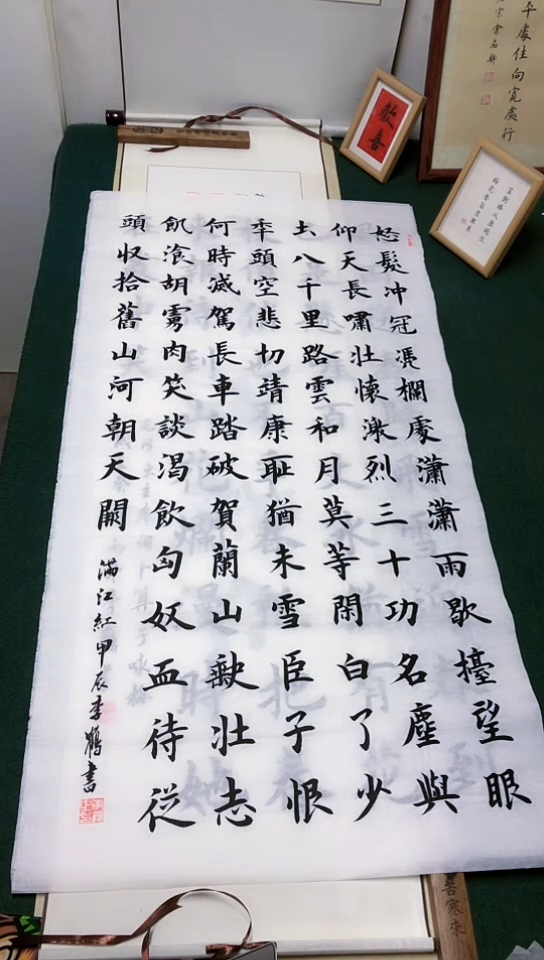 怒髮冲冠憑欄處瀟瀟雨歇擡望眼
仰天長嘯壯懷激烈三十功名塵與
土八千里路雲和月莫等閑白了少
秊頭空悲切靖康耻猶未雪臣子恨
何時滅駕長車踏破賀蘭山缺壯志
飢飡胡虜肉笑談渴飲匈奴血待從
頭収拾舊山河朝天闕
滿江紅甲辰李鶴書
歡喜
平處住向寬處行
苦寒來